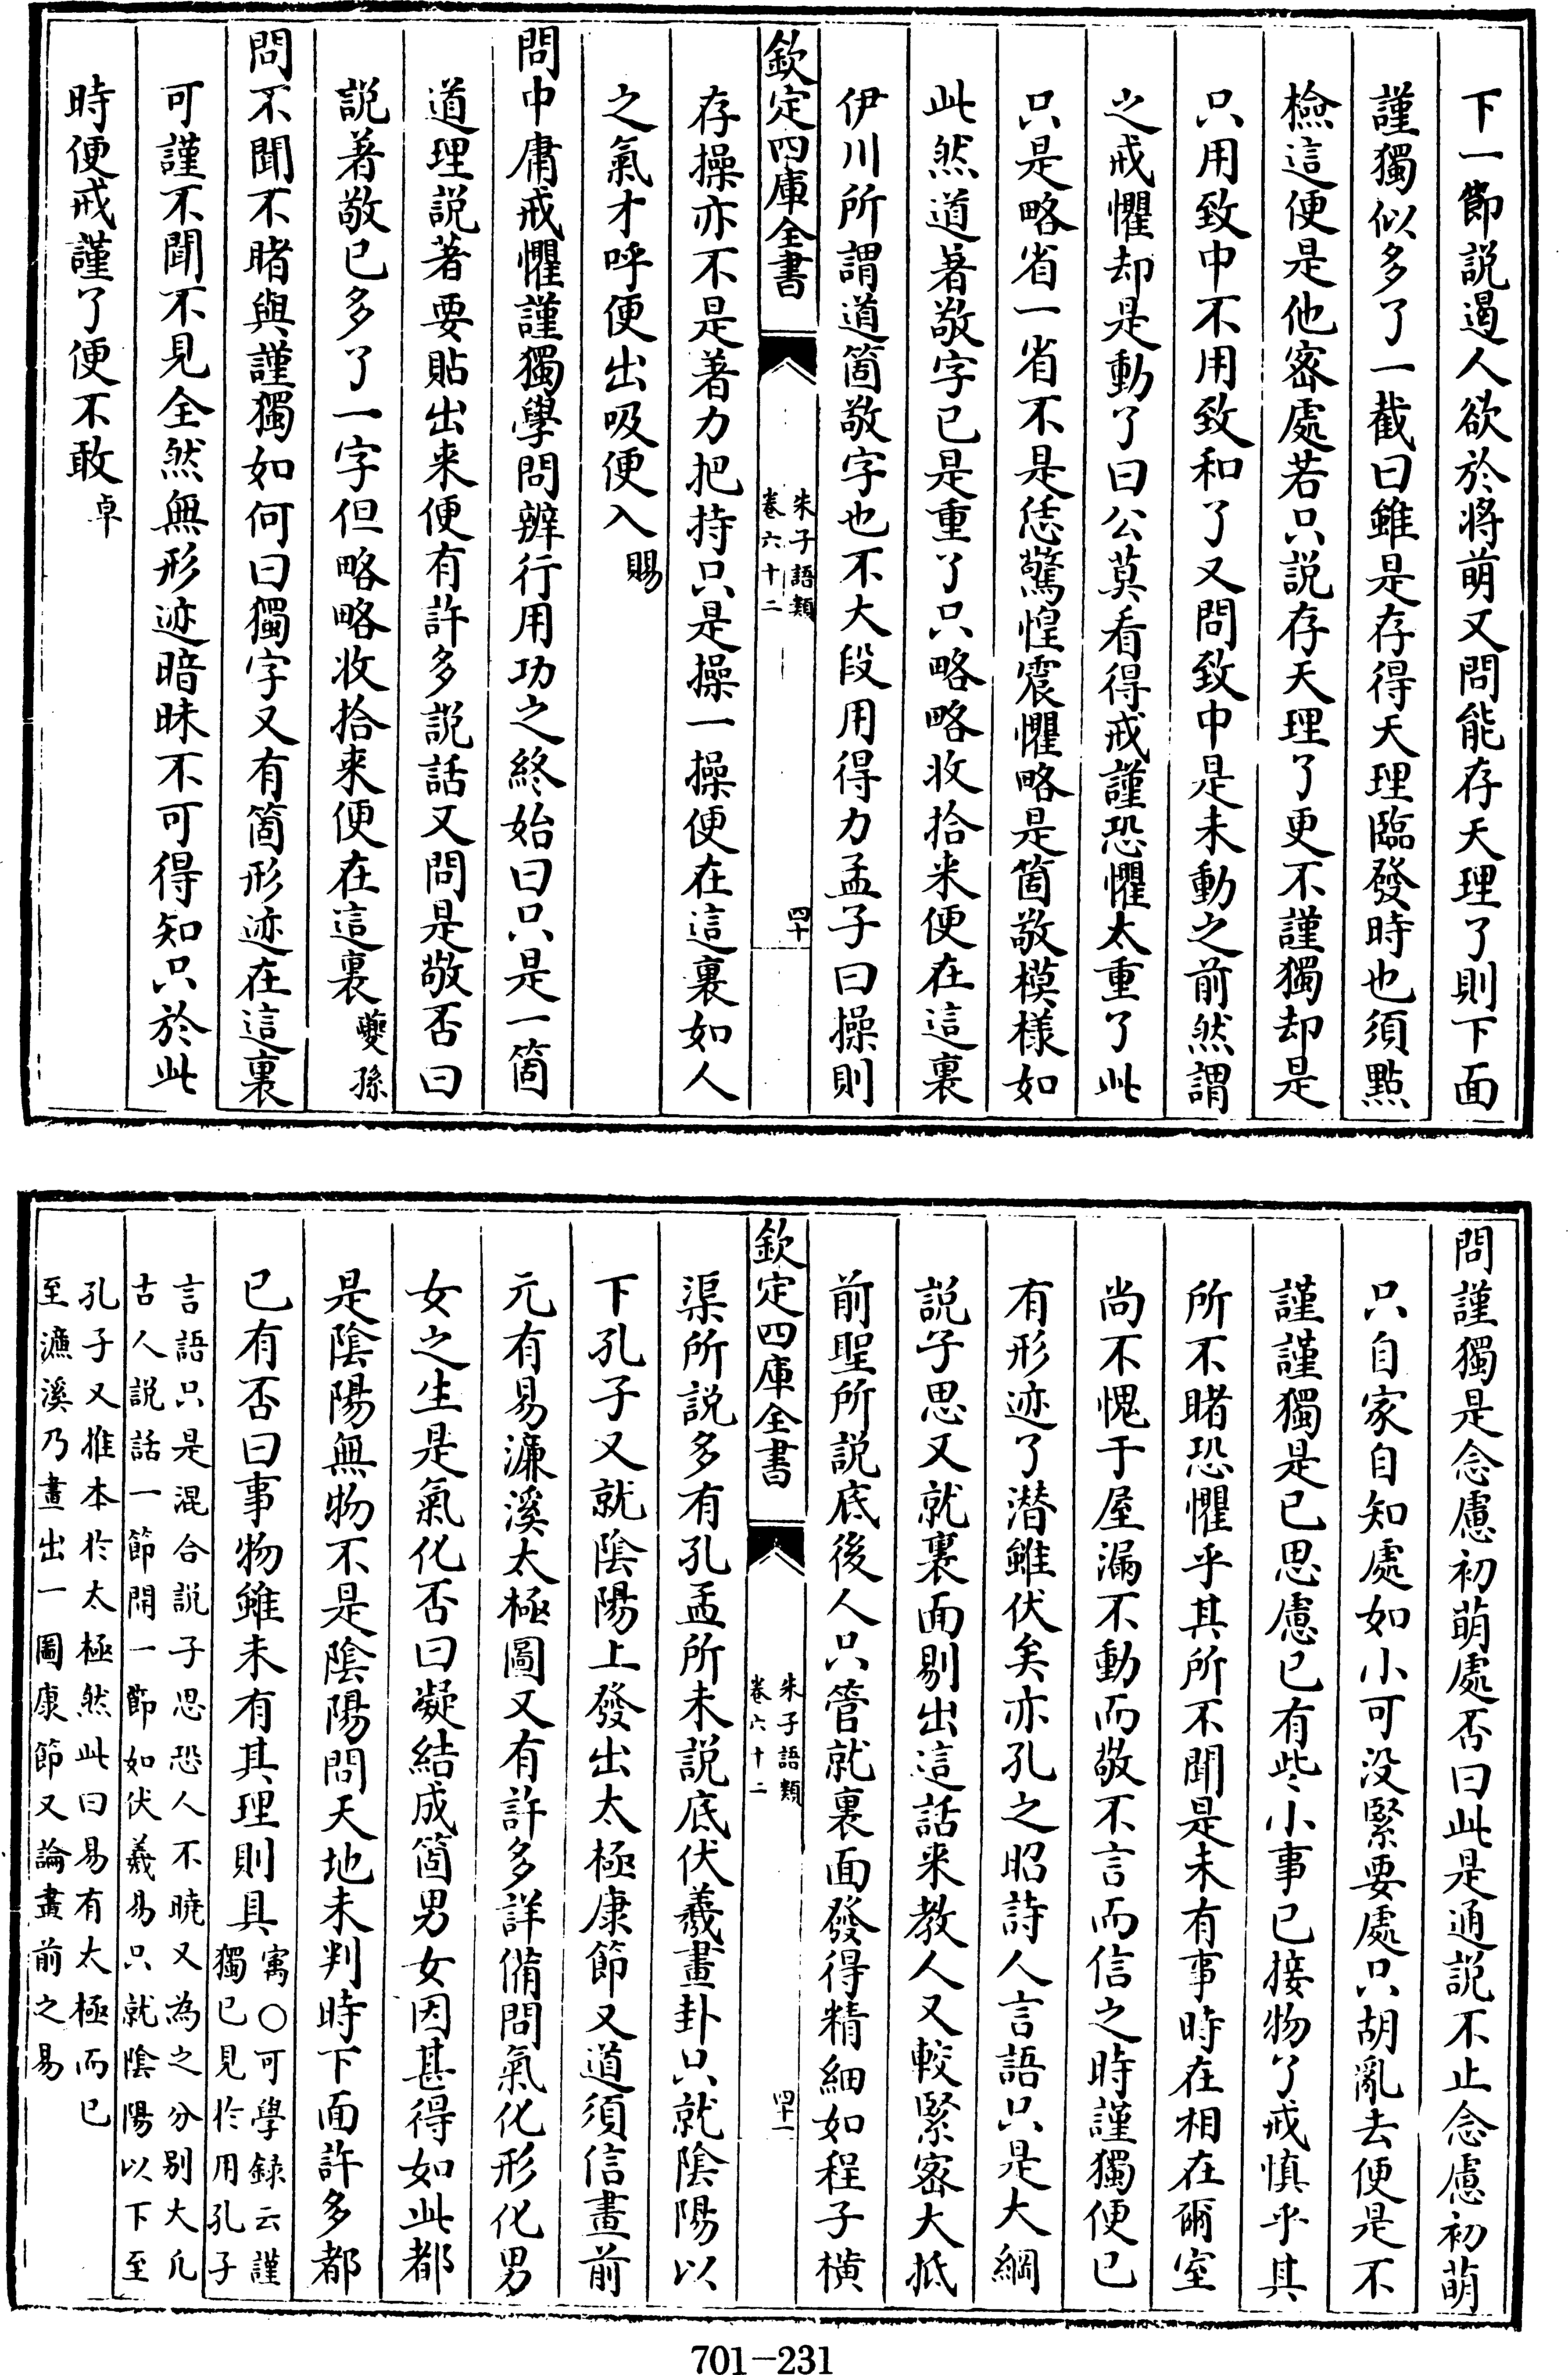 下一節説遏人欲於將萌又問能存天理了則下面
謹獨似多了一截曰雖是存得天理臨發時也須點
檢這便是他宻處若只説存天理了更不謹獨却是
只用致中不用致和了又問致中是未動之前然謂
之戒懼却是動了曰公莫看得戒謹恐懼太重了此
只是略省一省不是恁驚惶震懼略是箇敬模様如
此然道著敬字已是重了只略略收拾来便在這裏
伊川所謂道箇敬字也不大段用得力孟子曰操則
欽定四庫全書
朱子語類
卷六十二
四十
存操亦不是著力把持只是操一操便在這裏如人
之氣才呼便出吸便入賜
問中庸戒懼謹獨學問辨行用功之終始曰只是一箇
道理説著要貼出来便有許多説話又問是敬否曰
説著敬已多了一字但略略收拾来便在這裏夔孫
問不聞不睹與謹獨如何曰獨字又有箇形迹在這裏
可謹不聞不見全然無形迹暗昧不可得知只於此
時便戒謹了便不敢卓
問謹獨是念慮初萌處否曰此是通説不止念慮初萌
只自家自知處如小可没緊要處只胡亂去便是不
謹謹獨是已思慮已有些小事已接物了戒慎乎其
所不睹恐懼乎其所不聞是未有事時在相在爾室
尚不愧于屋漏不動而敬不言而信之時謹獨便已
有形迹了潛雖伏矣亦孔之昭詩人言語只是大綱
説子思又就裏面剔出這話来教人又較緊宻大抵
前聖所説底後人只管就裏面發得精細如程子横
欽定四庫全書
朱子語類
卷六十二
四十一
渠所説多有孔孟所未説底伏羲畫卦只就陰陽以
下孔子又就陰陽上發出太極康節又道須信畫前
元有易濂溪太極圖又有許多詳備問氣化形化男
女之生是氣化否曰凝結成箇男女因甚得如此都
是陰陽無物不是陰陽問天地未判時下面許多都
已有否曰事物雖未有其理則具寓○可學録云謹
獨已見於用孔子
言語只是混合説子思恐人不曉又為之分别大凡
古人説話一節開一節如伏羲易只就陰陽以下至
孔子又推本於太極然此曰易有太極而已
至濂溪乃畫出一圖康節又論畫前之易
701-231